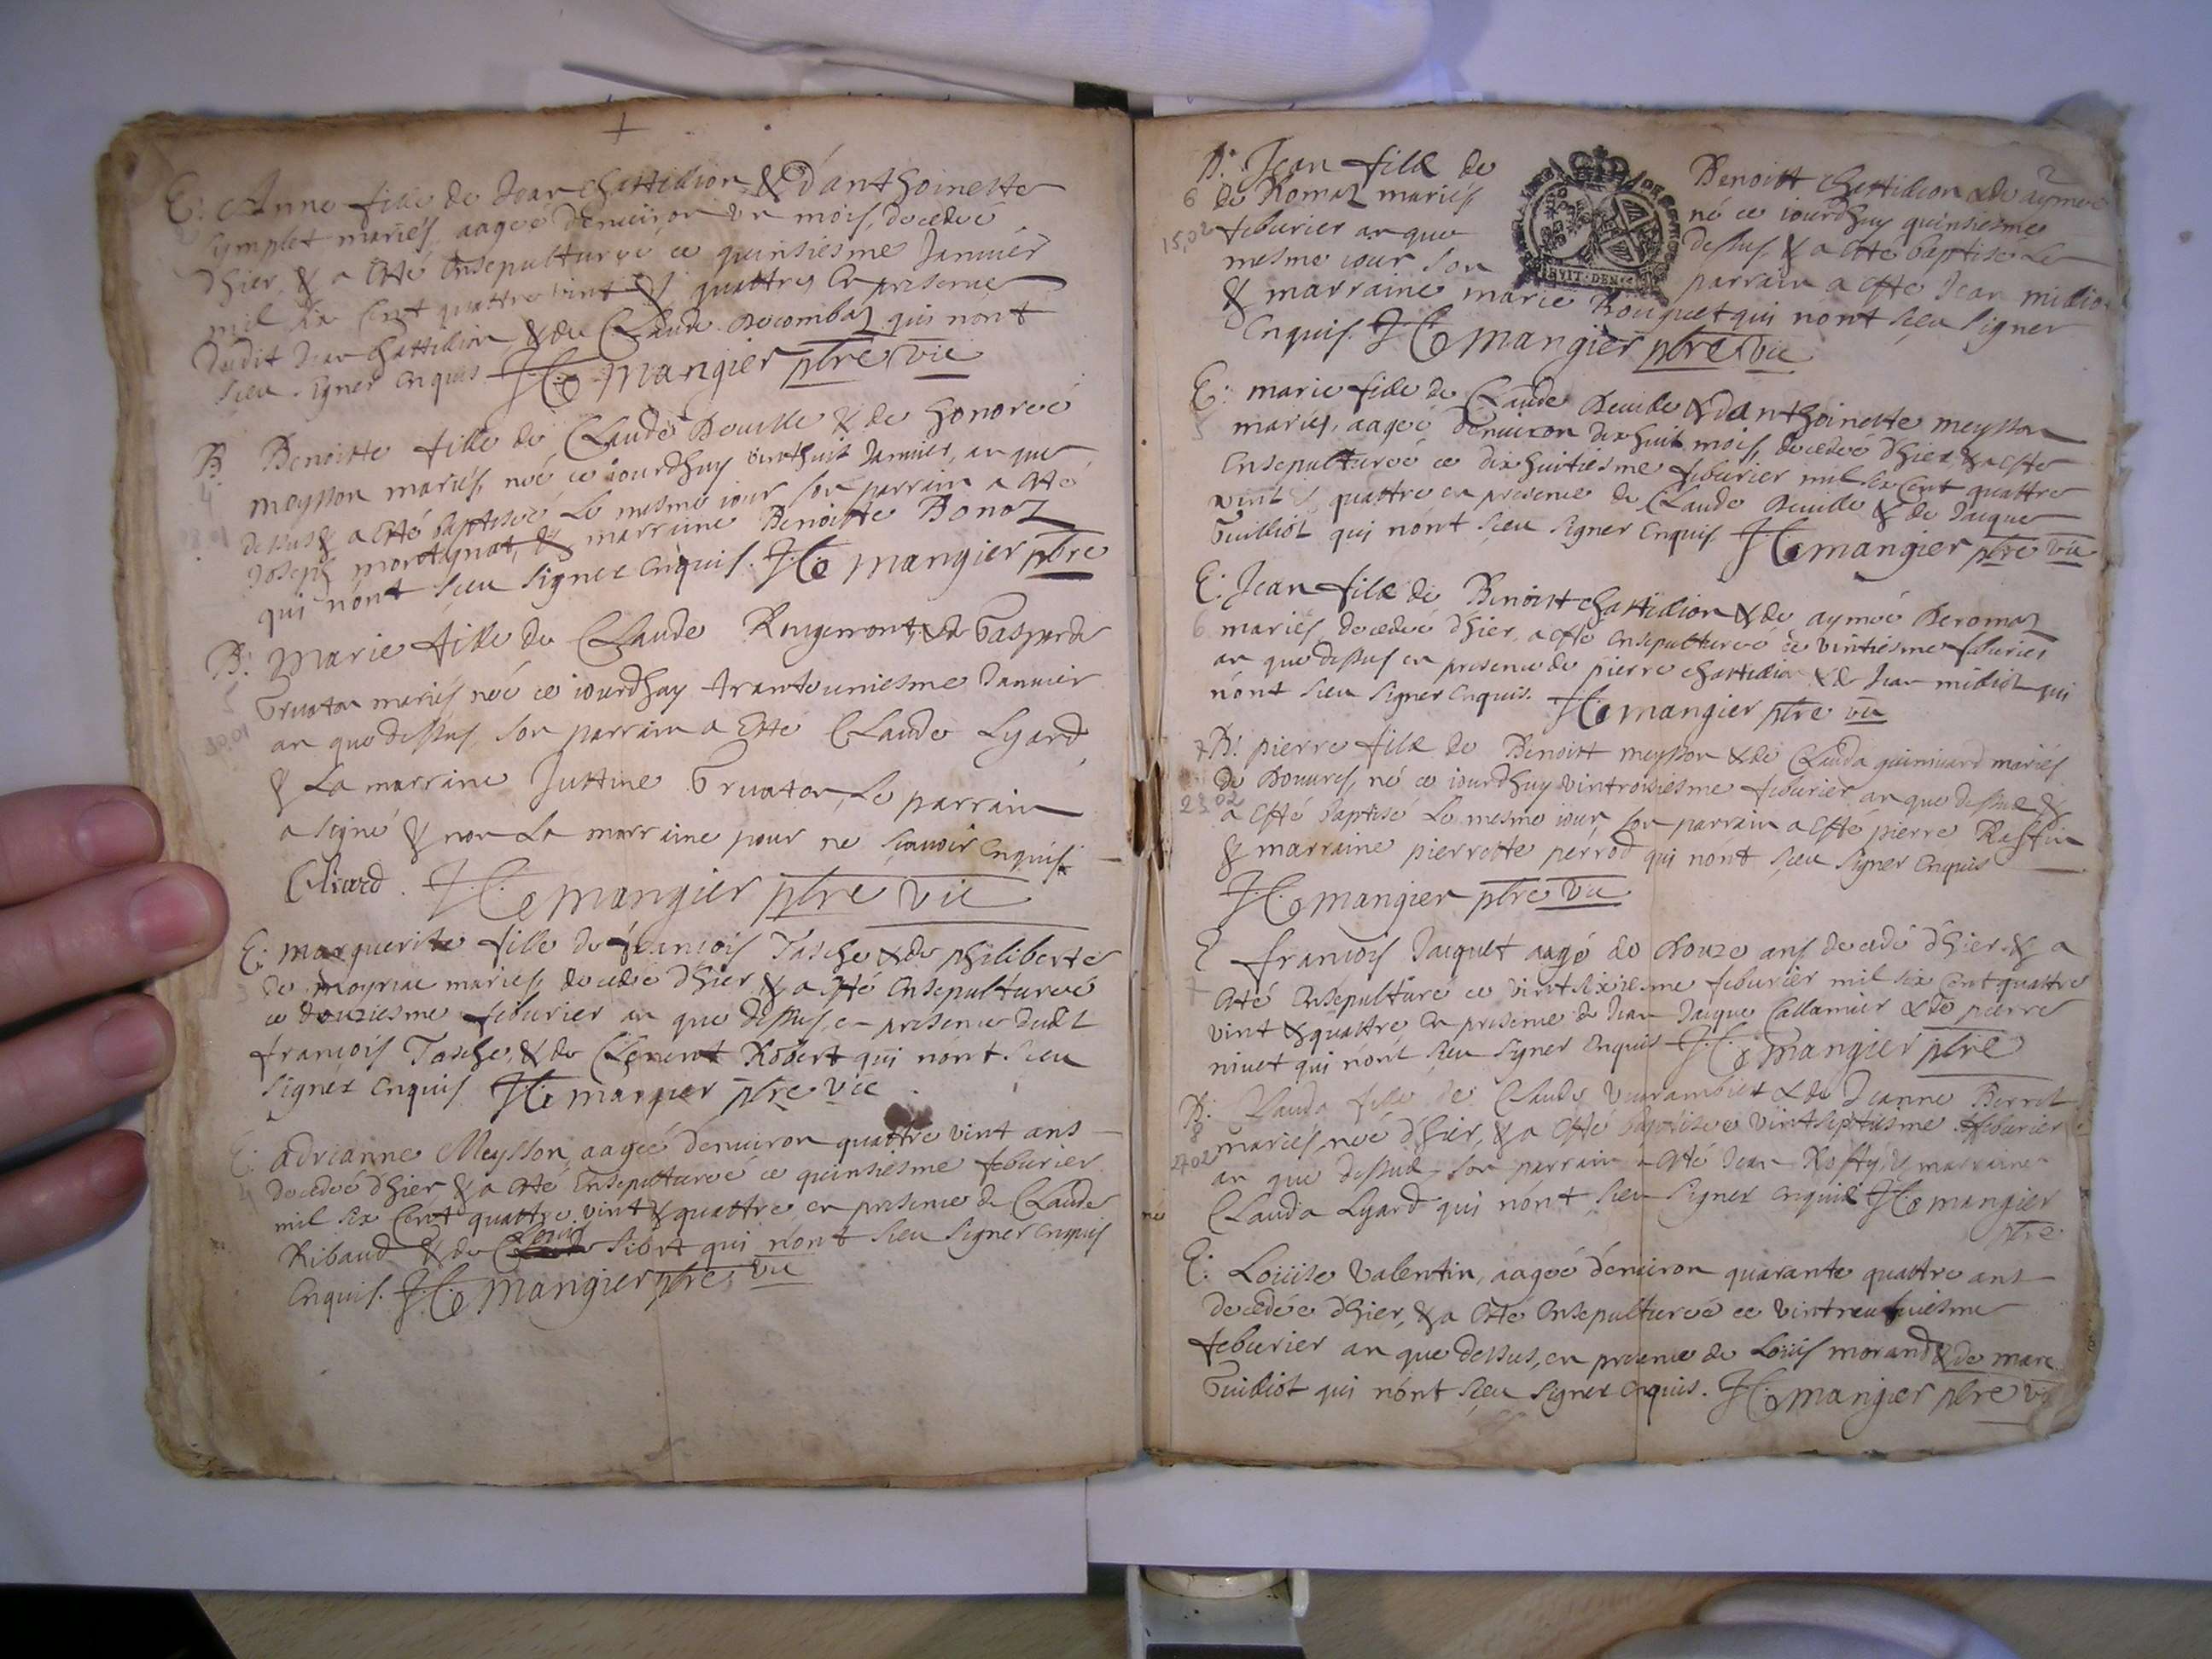 E. Anne fille de Jean chastillion & d'anthoinette
symplet mariés, aageé denuiron un mois, decedeé
dhier, & a esté ensepultureé ce quinsiesme Januier
mil six cent quattre vint & quattre, en presence
dudit Jean chastillion, & de Claude Decombaz qui nont
sceu signer enquis mangier pbre vic
B Benoitte fille de Claude Deuille & de honoreé
4 meysson mariés, neé ce jourdhuy vinthuit Januier, an que
dessus & a esté baptiseé le mesme jour son parrain a esté
Joseph montagnat, & marraine Benoitte Bonoz
qui nont sceu signer enquis. mangier pbre
B. Marie fille de Claude Rougemont, & de Gasparde
5 Truaton mariés neé ce jourdhuy trantouniesme Januier
an que dessus, son parrain a esté Claude Lyard
& La marraine Justine Truaton, Le parrain
a signé & non La marraine pour ne scauoir enquis
Cliard. mangier pbre vic
E. marguerite fille de françois Tasche & de philiberte
3 de moyriac mariés, decedeé dhier & a esté ensepultureé
ce douziesme feburier an que dessus, en presence dudit
françois Tasche, & de Clement Robert qui nont sceu
signer enquis mangier pbre vic
E. adrianne Meysson, aageé denuiron quattre vint ans
4 decedeé dhier, & a esté ensepultureé ce quinsiesme feburier
mil six cent quattre vint & quattre, en presence de Claude
Ribaud & de Louis Sibert qui nont sceu signer enquis
enquis. mangier pbre vic
2
B. Jean filz de Benoist chastillion & de aymeé
6 de Romaz mariés, né ce jourdhuy quinsiesme
15,02 feburier an que dessus, & a esté baptisé Le
mesme jour son parrain a esté Jean millio
& marraine marie Bouquet qui nont sceu signer
enquis. mangier pbre vic
E. marie fille de Claude Deuille & d'anthoinette meysson
5 mariés, aageé denuiron dixhuit mois, decedeé dhier, & a esté
ensepultureé ce dixhuitiesme feburier mil six cent quattre
vint & quattre en presence de Claude Deuille & de Jacque
Guilliot qui nont sceu signer enquis mangier pbre vic
E. Jean filz de Benoist chastillion & de aymeé Deromaz
6 mariés, decedeé dhier, a esté ensepultureé ce vintiesme feburier
an que dessus en presence de pierre chastillion & de Jean milliot qui
nont sceu signer enquis. mangier pbre vic
7 B. pierre filz de Benoist meysson & de Clauda guinuard mariés
de Douures, né ce jourdhuy vintroisiesme feburier, an que dessus &
23 02 a esté baptisé Le mesme jour, son parrain a esté pierre Rastin
& marraine pierrette perrod qui nont sceu signer enquis
mangier pbre vic
E françois Jacquet aagé de douze ans decedé dhier, & a
7 esté ensepulturé ce vintsixiesme feburier mil six cent quattre
vint & quattre en presence de Jean Jacque Callamier & de pierre
niuet qui nont sceu signer enquis mangier pbre
B. Clauda fille de Claude & de Jeanne Berret
8 mariés, neé dhier, & a esté baptiseé vintseptiesme feburier
2702 an que dessus son parrain a esté Jean Roffy, & marraine
Clauda Lyard qui nont sceu signer enquis mangier
pbre.
E. Loüise Valentin, aageé denuiron quarante quattre ans
decedeé dhier, & a esté ensepultureé ce vintneufuiesme
feburier an que dessus, en presence de Loüis morand & de marc
Guilliot qui nont sceu signer enquis. mangier pbre vic